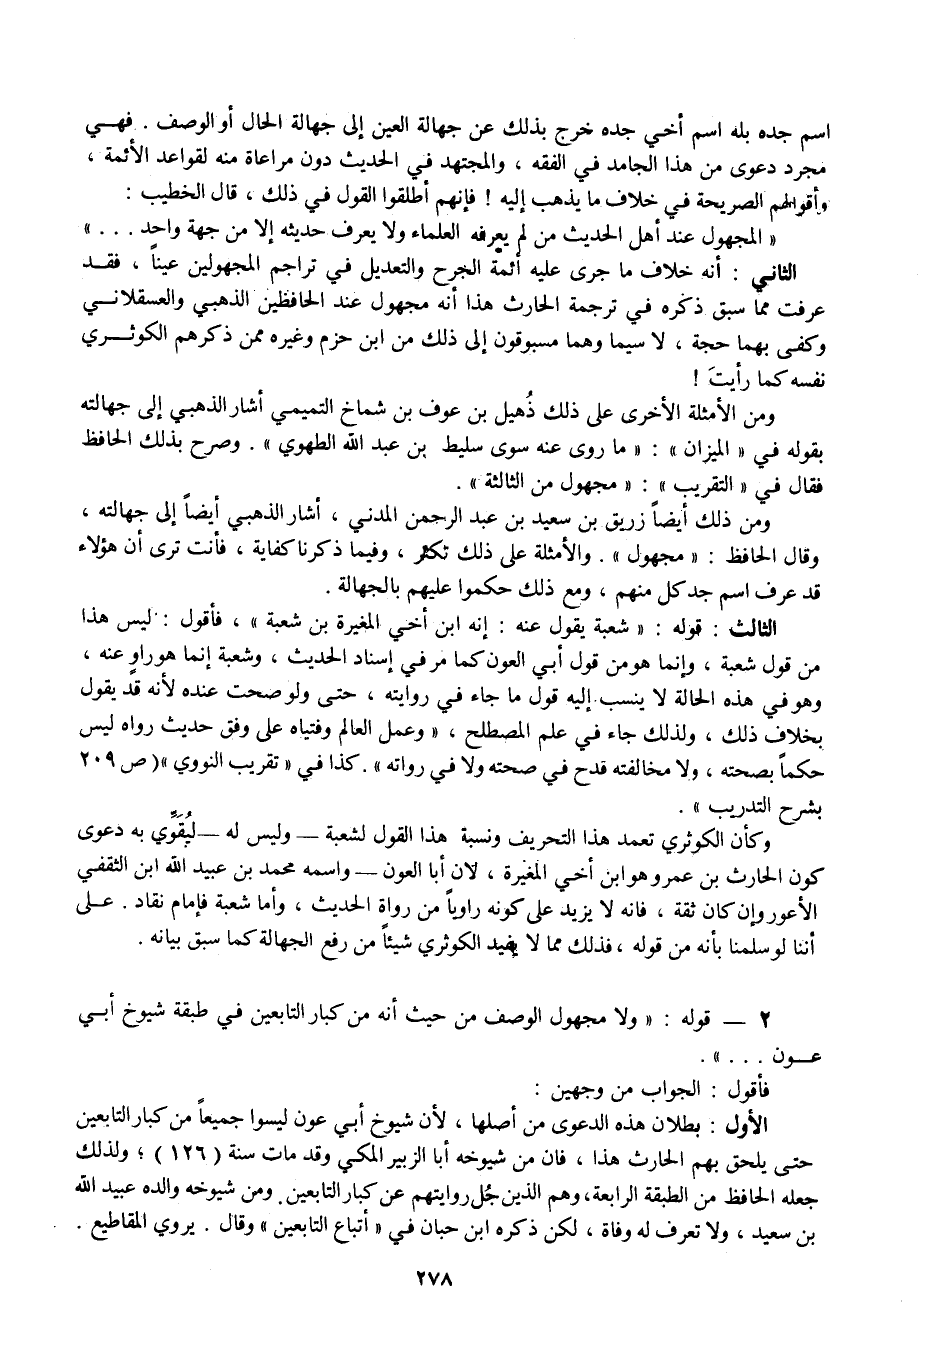 اسم جده بله اسم أخي جده خرج بذلك عن جهالة العين إلى جهالة الحال أو الوصف . فهي
مجرد دعوى من هذا الجامد في الفقه ، والمجتهد في الحديث دون مراعاة منه لقواعد الأئمة ،
وأقوالهم الصريحة في خلاف ما يذهب إليه ! فإنهم أطلقوا القول في ذلك ، قال الخطيب :
« المجهول عند أهل الحديث من لم يعرفه العلماء ولا يعرف حديثه إلا من جهة واحد . . . »
الثاني : أنه خلاف ما جرى عليه أئمة الجرح والتعديل في تراجم المجهولين عيناً ، فقد
عرفت مما سبق ذكره في ترجمة الحارث هذا أنه مجهول عند الحافظين الذهبي والعسقلاني
وكفى بهما حجة ، لا سيما وهما مسبوقون إلى ذلك من ابن حزم وغيره ممن ذكرهم الكوثري
نفسه كما رأيتَ !
ومن الأمثلة الأخرى على ذلك ذُهيل بن عوف بن شماخ التميمي أشار الذهبي إلى جهالته
بقوله في « الميزان » : « ما روى عنه سوى سليط بن عبد الله الطهوي » . وصرح بذلك الحافظ
فقال في « التقريب » : « مجهول من الثالثة » .
ومن ذلك أيضاً زريق بن سعيد بن عبد الرحمن المدني ، أشار الذهبي أيضاً إلى جهالته ،
وقال الحافظ : « مجهول » . والأمثلة على ذلك تكثر ، وفيما ذكرنا كفاية ، فأنت ترى أن هؤلاء
قد عرف اسم جد كل منهم ، ومع ذلك حكموا عليهم بالجهالة .
الثالث : قوله : « شعبة يقول عنه : إنه ابن أخي المغيرة بن شعبة » ، فأقول : ليس هذا
من قول شعبة ، وإنما هو من قول أبي العون كما مر في إسناد الحديث ، وشعبة إنما هو راوٍ عنه ،
وهو في هذه الحالة لا ينسب إليه قول ما جاء في روايته ، حتى ولو صحت عنده لأنه قد يقول
بخلاف ذلك ، ولذلك جاء في علم المصطلح ، « وعمل العالم وفتياه على وفق حديث رواه ليس
حكماً بصحته ، ولا مخالفته قدح في صحته ولا في رواته » . كذا في « تقريب النووي »( ص ٢٠٩
بشرح التدريب » .
وكأن الكوثري تعمد هذا التحريف ونسبة هذا القول لشعبة — وليس له — لِيُقَوِّي به دعوى
كون الحارث بن عمرو هو ابن أخي المغيرة ، لان أبا العون — واسمه محمد بن عبيد الله ابن الثقفي
الأعور وإن كان ثقة ، فانه لا يزيد على كونه راوياً من رواة الحديث ، وأما شعبة فإمام نقاد . على
أننا لو سلمنا بأنه من قوله ، فذلك مما لا يفيد الكوثري شيئاً من رفع الجهالة كما سبق بيانه .
٢ — قوله : « ولا مجهول الوصف من حيث أنه من كبار التابعين في طبقة شيوخ أبي
عون . . . » .
فأقول : الجواب من وجهين :
الأول : بطلان هذه الدعوى من أصلها ، لأن شيوخ أبي عون ليسوا جميعاً من كبار التابعين
حتى يلحق بهم الحارث هذا ، فان من شيوخه أبا الزبير المكي وقد مات سنة ( ١٢٦ ) ؛ ولذلك
جعله الحافظ من الطبقة الرابعة، وهم الذين جُل روايتهم عن كبار التابعين. ومن شيوخه والده عبيد الله
بن سعيد ، ولا تعرف له وفاة ، لكن ذكره ابن حبان في « أتباع التابعين » وقال . يروي المقاطيع .
٢٧٨